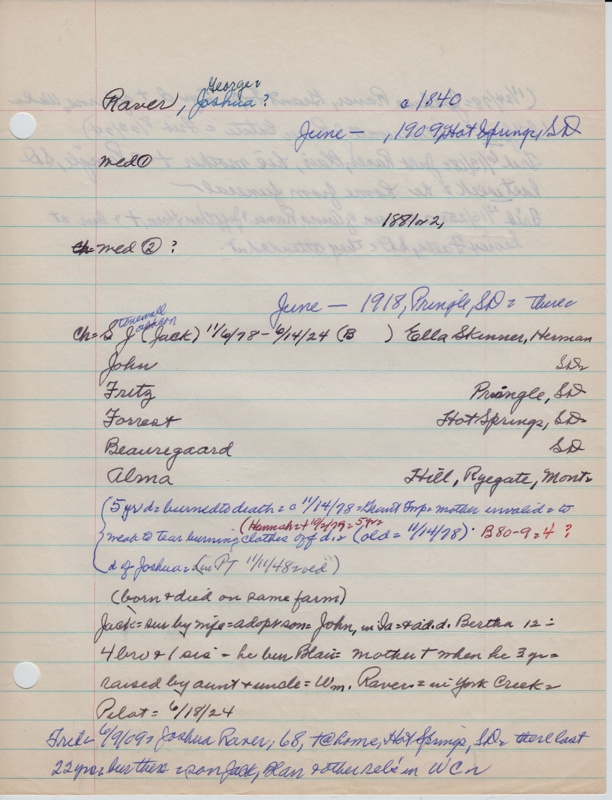 George
Raver, Joshua? c 1840
June — , 1909, Hot Springs, SD
med ①
1881 or 2,
med ② ?
June — 1918, Pringle, SD = there
Stonewall Jackson
ch = S J (Jack) 11/6/78 - 6/14/24 (B ) Ella Skinner, Herman
John SD
Fritz Pringle, SD
Forrest Hot Springs, SD
Beauregaard SD
Alma Hill, Ryegate, Mont
(5 yr d = burned to death = c 11/14/78 = Grant Twp = mother invalid = to
(Hannah = + 10/2/79 = 5 yr
weak to tear burning clothes off d = (old = 11/14/78) · B 80-9 = 4 ?
(d of Joshua = (in P/ 11/11/48 = ed)
(born + died on same farm)
Jack = sur by wife = adopt son = John, in Ia = + ad. d. Bertha 12 =
4 bro + 1 sis = he bur Blair = mother + when he 3 yr =
raised by aunt + uncle = Wm. Raver = in York Creek =
Pilot = 6/18/24
Trib = 6/9/09 = Joshua Raver, 68, + @ home, Hot Springs, SD = there last
22 yr = bur there = son Jack, Blair + other rels in WC